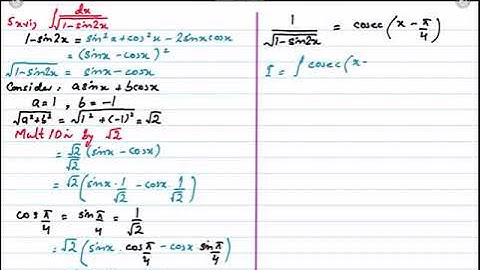 5xvi) ∫ dx/√1-sin2x
1-sin2x = sin²x + cos²x - 2sinxcosx
= (sinx - cosx)²
√1-sin2x = sinx - cosx
Consider: asinx + bcosx
a = 1 , b = -1
√a²+b² = √1²+(-1)² = √2
Mult/Div by √2
= √2/√2 (sinx - cosx)
= √2 (sinx · 1/√2 - cosx · 1/√2)
cos π/4 = sin π/4 = 1/√2
= √2 (sinx · cos π/4 - cosx sin π/4)
1/√1-sin2x = cosec(x - π/4)
I = ∫ cosec(x -